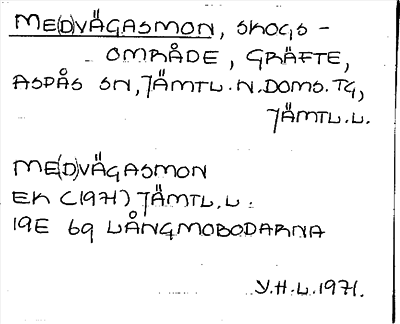 ME(D)VÄGASMON, SKOGS-
OMRÅDE, GRÄFTE,
ASPÅS SN, JÄMTL. N. DOMS. TG,
JÄMTL. L.
ME(D)VÄGASMON
EK (1971) JÄMTL. L.
19E 6g LÅNGMOBODARNA
Y.H.L. 1971.